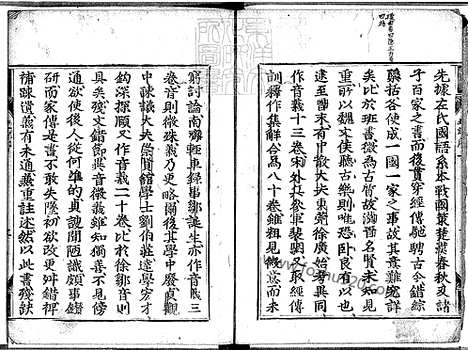 先據左氏國語系本戰國策楚漢春秋及諸
子百家之書而後貫穿經傳馳騁古今錯綜
隱括各使成一國一家之事故其意難究詳
矣比於班書微為古質故漢晉名賢未知見
重所以魏文侯聽古樂則唯恐臥良有以也
逮至晉末有中散大夫東莞徐廣始考異同
作音義十三卷宋外兵參軍裴駰又取經傳
訓釋作集解合為八十卷雖粗見微意而未
窮討論南齊輕車錄事鄒誕生亦作音義三
卷音則微殊義乃更略爾後其學中廢貞觀
中諫議大夫崇賢館學士劉伯莊達學宏才
鉤深探賾又作音義二十卷比於徐鄒音則
具矣殘文錯節異音微義雖知獨善不見傍
通欲使後人從何准的貞謏聞陋識頗事鑽
研而家傳是書不敢失墜初欲改更舛錯裨
補疎遺義有未通兼重註述然以此書殘缺